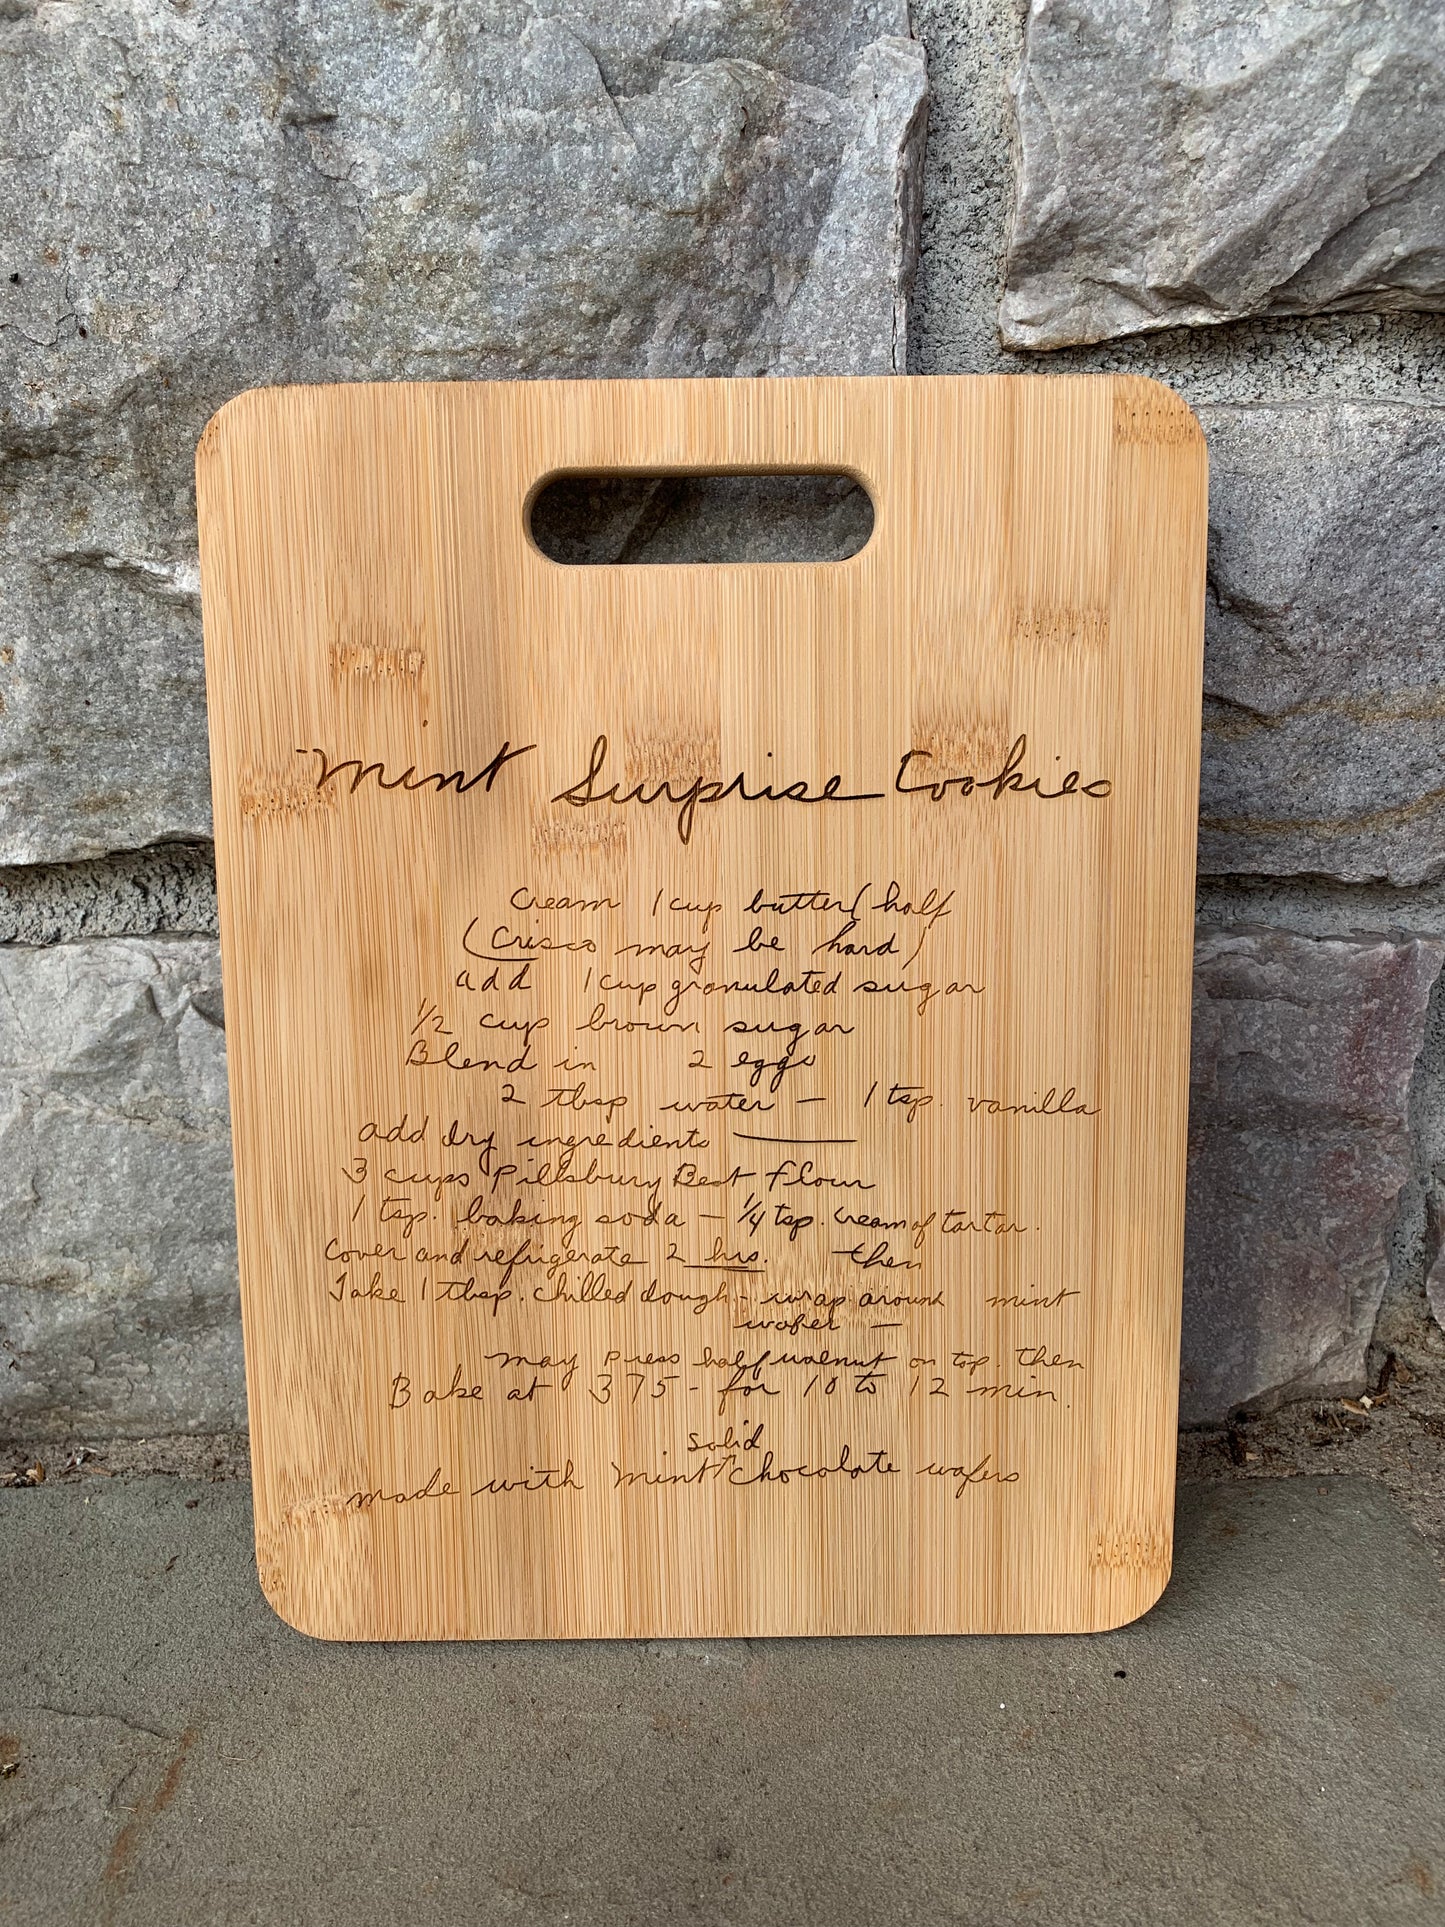 Mint Surprise Cookies
Cream 1 cup butter (half
(Crisco may be hard)
add 1 cup granulated sugar
1/2 cup brown sugar
Blend in 2 eggs
2 tbsp water - 1 tsp. vanilla
add dry ingredients —
3 cups Pillsbury Best flour
1 tsp. baking soda - 1/4 tsp. cream of tartar.
Cover and refrigerate 2 hrs. then
Take 1 tbsp. chilled dough - wrap around mint
wafer -
may press half walnut on top. then
Bake at 375 - for 10 to 12 min.
solid
made with mint chocolate wafers